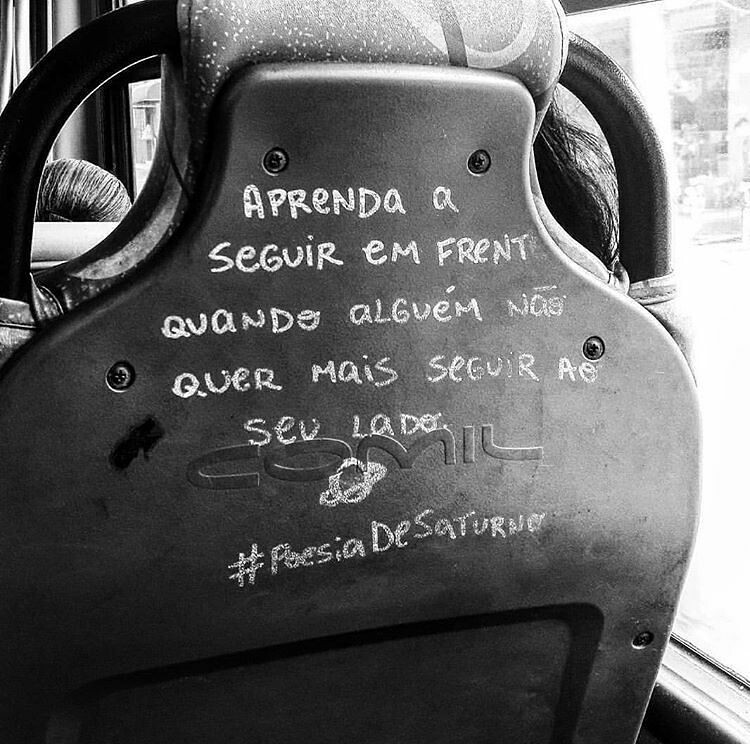 APRENDA a
SEGUIR EM FRENTE
QUANDO ALGUÉM NÃO
QUER MAIS SEGUIR AO
SEU LADO
COMIL
#PoesiaDeSaturno